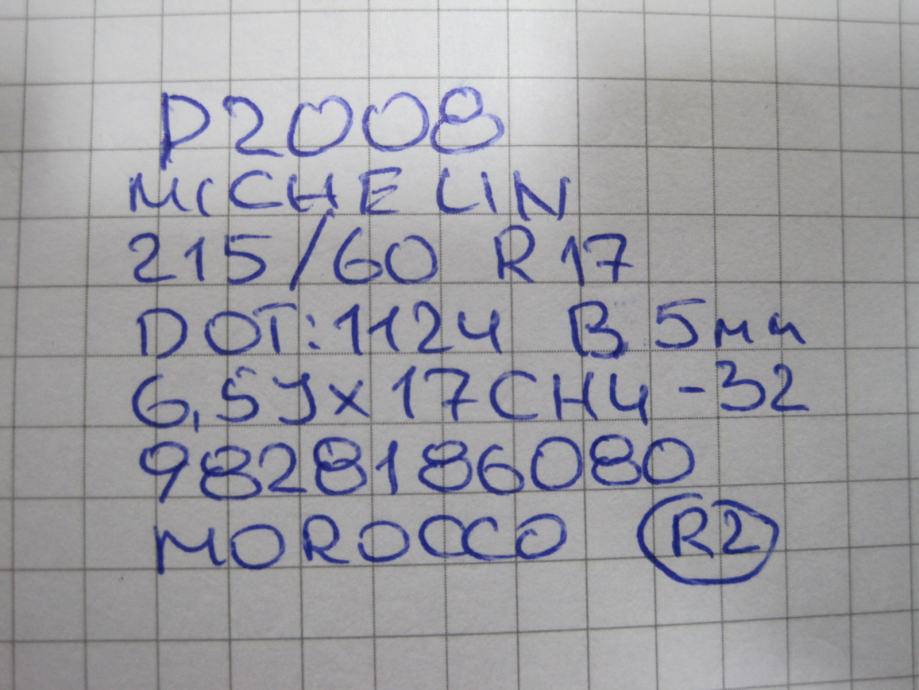 P2008
MICHELIN
215/60 R17
DOT:1124 B 5мм
6,5Jx17CH4-32
9828186080
MOROCCO R2